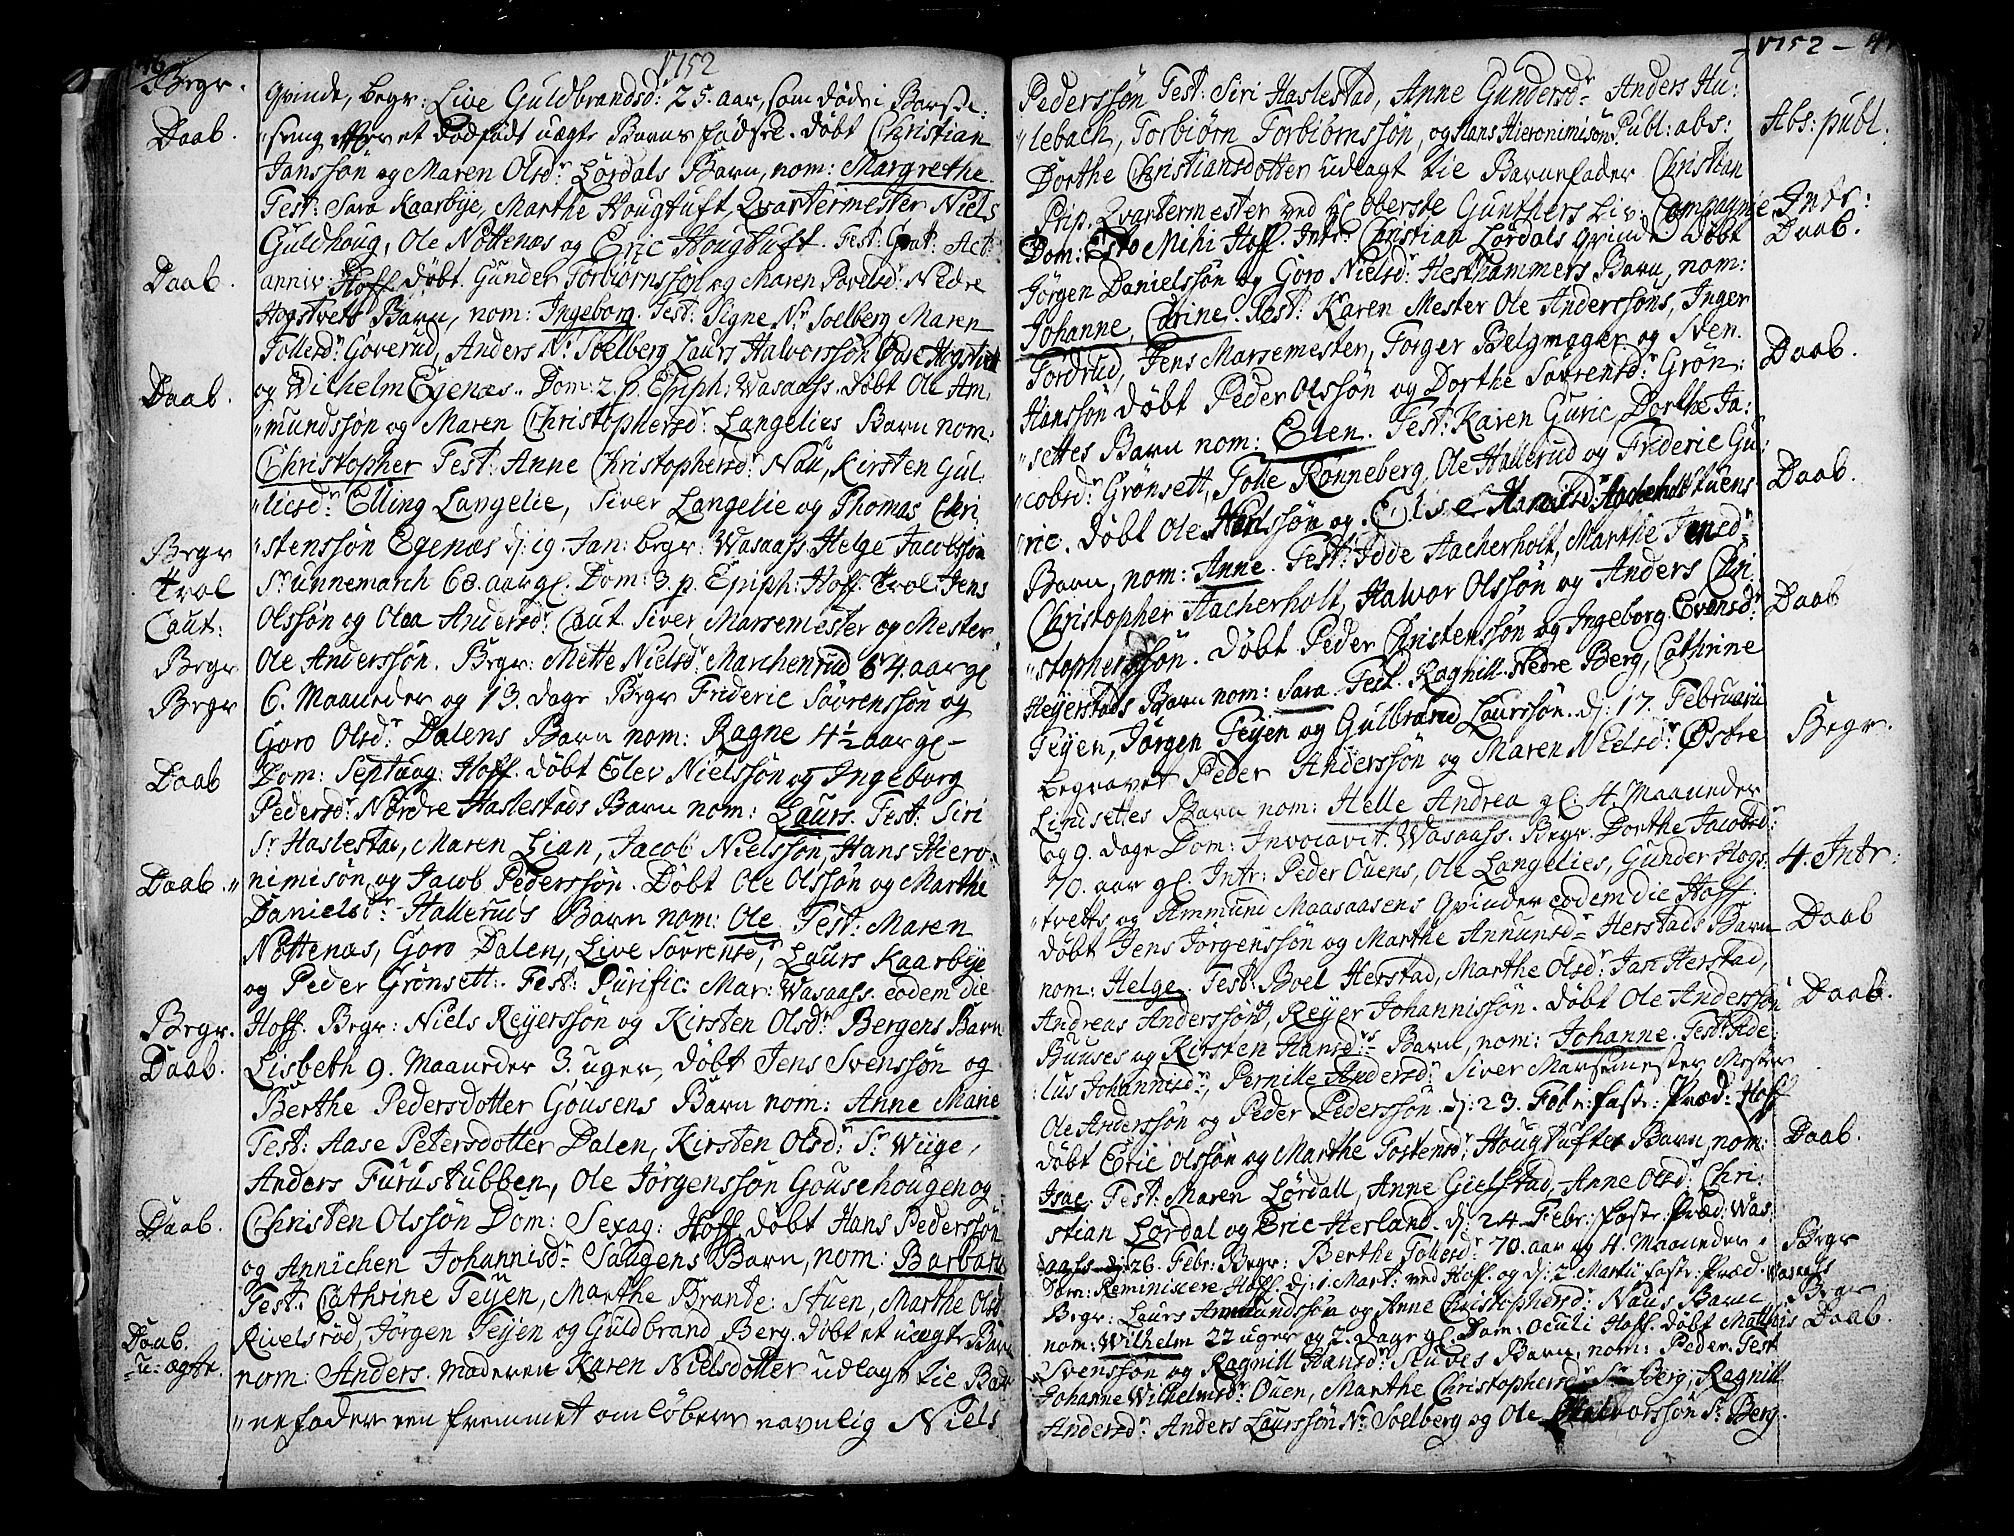 1752
Begr.
qvinde, begr: Live Guldbrandsd: 25. aar, som døde i Barsel:
Daab.
seng efter et dødfødt uægte Barns fødsel. døbt Christian
Janssøn og Maren Olsdr Lørdals Barn, nom: Margrethe.
Test: Sara Kaarbye, Marthe Hougtuft, Qvartermester Niels
Guldhoug, Ole Nøttenæs og Eric Hougtuft. Fest: Grat: Act:
Daab.
anniv: Hoff. døbt Gunder Torbiørnssøn og Maren Povelsdr: Nedre
Hogstvets Barn, nom: Ingeborg. Test: Signe Nr Soelberg, Maren
Tollesdr: Goverud, Anders Nr: Soelberg Laurs Halvorssøn Hogstvet
Daab.
og Wilhelm Egenæs. Dom: 2. p. Epiph: Wasaass. døbt Ole Am:
mundssøn og Maren Christophersdr: Langelies Barn nom:
Christopher Test: Anne Christophersdr: Nau, Kirsten Gul:
licsdr: Elling Langelie, Siver Langelie og Thomas Chri:
Begr
stenssøn Egenæs d: 19. Jan: begr: Wasaass. Helge Jacobssøn
Trol
Sr unnemarch 68. aar gl. Dom: 3. p. Epiph: Hoff. trol: Jens
Caut:
Olssøn og Olea Andersdr: Caut. Siver Marsemester og Mester
Begr
Ole Anderssøn. Begr: Mette Nielsdr: Marchenrud 64. aar gl
Begr
6. Maaneder og 13. dage Begr Frideric Sørrenssøn og
Goro Olsdr: Dalens Barn nom: Ragne 4½ aar gl-
Daab
Dom: Septuag: Hoff. døbt Elev Nielssøn og Ingeborg
Pedersdr: Nordre Haslestads Barn nom: Laurs. Test: Siri
Sr Haslestad, Maren Lian, Jacob Nielssøn, Hans Hiero:
Daab.
nimisøn og Jacob Pederssøn. Døbt Ole Olssøn og Marthe
Danielsdr: Halleruds Barn nom: Ole. Test: Maren
Nøttenæs, Goro Dalen, Live Sørrensdr, Laurs Kaarbye
og Peder Grønsett. Fest: Purific: Mar: Wasaass. eodem die
Begr.
Hoff. Begr: Niels Reyerssøn og Kirsten Olsdr Bergens Barn
Daab.
Lisbeth 9. Maaneder 3. uger, døbt Jens Svenssøn og
Berthe Pedersdotter Gousens Barn nom: Anne Marie
Test: Aase Petersdotter Dalen, Kirsten Olsdr: Sr Wiige,
Anders Furustubben, Ole Jørgenssøn Gousehougen og
Daab.
Christen Olssøn Dom: Sexag: Hoff. døbt Hans Pederssøn
og Annichen Johannisdr Saugens Barn, nom: Barbara
Test: Cathrine Teyen, Marthe Brande: Stuen, Marthe Olsd
Daab.
Rivelsrød, Jørgen Teyen og Guldbrand Berg. døbt et uægte Barn
u: ægte.
nom: Anders. moderen Karen Nielsdotter udlagt tie Bar
nefader een fremmet omløber navnlig Niels
1752
Pederssøn Test: Siri Haslestad, Anne Gundersdr Anders Hu:
Abs: publ.
lebach, Torbiørn Torbiørnssøn, og Hans Hieronimisøn. Publ: abs:
Dorthe Christiansdotter udlagt tie Barnefader Christian
Intr:
Pip. Qvartermester ved Hr Oberste Gunthers Liv: Compagnie
Daab.
Dom: Esto Mihi Hoff. Intr: Christian Lørdals qvinde døbt
Jørgen Danielssøn og Goro Nielsdr: Hesthammers Barn, nom:
Johanne, Catrine. Test: Karen Mester Ole Anderssøns, Inger
Daab.
Tordrud, Jens Marsemester, Torger Belgmager og Sven
Hanssøn døbt Peder Olssøn og Dorthe Sørrensdr: Grøn:
settes Barn nom: Elen. Test: Karen Guric Dorthe Ja:
Daab.
cobsdr: Grønsett, Tolle Rønneberg, Ole Hallerud og Frideric Gu:
ric. døbt Ole Nielssøn og Elise Hansdr: Hacherholtstuens
Barn, nom: Anne. Test: Idde Hacherholt, Marthe Jensdr
Christopher Hacherholt, Halvor Olssøn og Anders Chri
Daab
stopherssøn. Døbt Peder Christenssøn og Ingeborg Evensdr
Heyerstads Barn nom: Sara. Test. Ragnill Nedre Berg, Cathrine
Teyen, Jørgen Teyen og Gulbrand Laurssøn. d: 17. Februarii
Begr.
begravet Peder Anderssøn og Maren Nielsdr: Østre
Lindsettes Barn nom: Helle Andrea gl: 4. Maaneder
og 9. dage Dom: Invocavit. Wasaass. Begr. Dorthe Jacobsdr
4. Intr:
70. aar gl. Intr: Peder Ouens, Ole Langelies, Gunder Hogs:
tvetts og Ammund Maasaasens Qvinder eodem die Hoff.
Daab
døbt Jens Jørgenssøn og Marthe Annunsdr Herstads Barn
nom: Helge. Test: Boel Herstad, Marthe Olsdr: Jan Herstad,
Daab.
Andreas Anderssøn, Reyer Johannissøn. døbt Ole Anderssøn
Buuses og Kirsten Hansdr Barn, nom: Johanne. Test: Ade:
lus Johannisdr, Pernille Andersdr: Siver Marsemester Mester
Ole Anderssøn og Peder Pederssøn. d: 23. Febr: faste: Præd: Hoff
Daab.
døbt Eric Olssøn og Marthe Tostensdr: Hougtufter Barn, nom:
Isac. Test: Maren Lørdall, Anne Gielstad, Anne Olsdr: Chri:
stian Lørdal og Eric Herland. d: 24. Febr: faste: Præd: Was:
Begr
aass d: 26. Febr: Begr: Berthe Tollesdr 70. aar og 4. Maaneder.
Dom: Reminiscere Hoff. d: 1. Mart: ved Hoff. og d: 2 Martii faste: Præd. Wasaass
Begr
Begr: Laurs Ammundssøn og Anne Christophersdr: Naus Barn
Daab.
nom: Wilhelm 22 uger og 2. dage gl. Dom: Oculi Hoff. døbt Mathis
Svenssøn og Ragnill Hansdr: Studes Barn, nom: Peder. Test
Johanne Wilhelmsdr: Ouen, Marthe Christophersdr Sr Berg, Ragnill
Andersdr: Anders Laurssøn Nr: Soelberg og Ole Halvorssøn Sr: Berg.